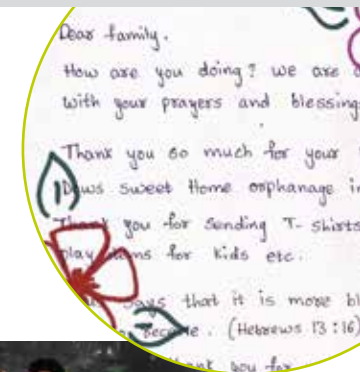 Dear family.
How are you doing? we are
with your prayers and blessing
Thank you so much for your
Daws sweet Home orphanage in
Thank you for sending T- shirts
play for kids etc.
says that it is more
(Hebrews 13:16)
thank you for